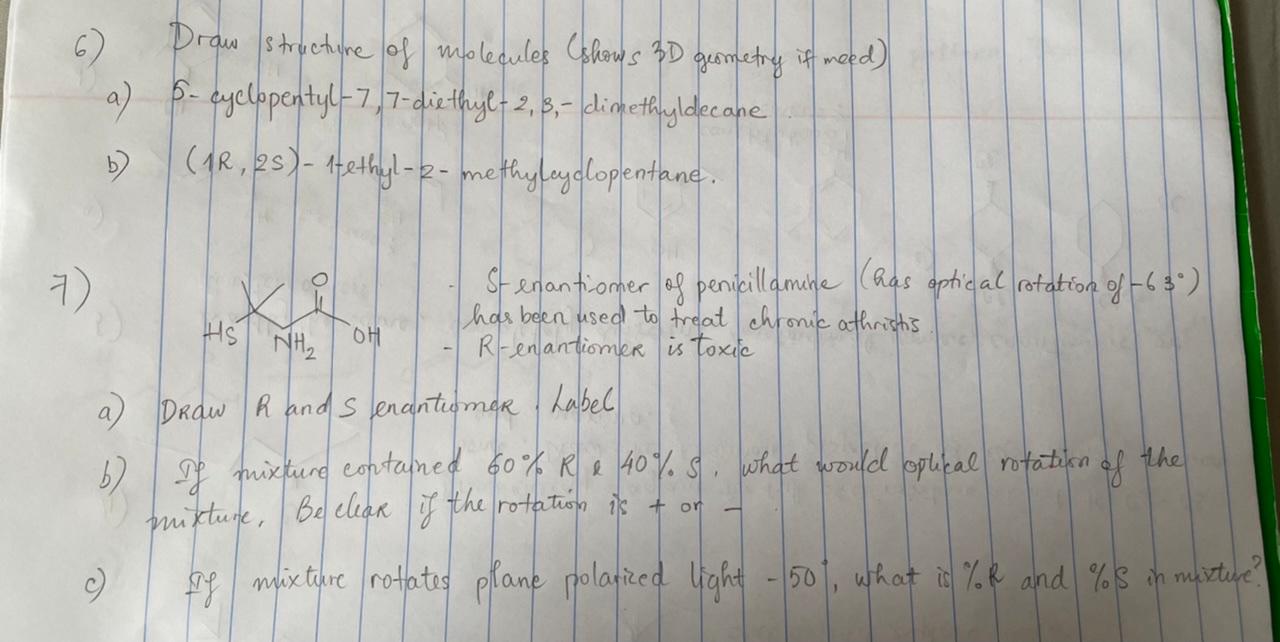 6) Draw structure of molecules (shows 3D geometry if need)
a) 5-cyclopentyl-7,7-diethyl-2,3,-dimethyldecane
b) (1R,2S)-1-ethyl-2-methylcyclopentane.
7)
O
HS
NH2
OH
- S-enantiomer of penicillamine (has optical rotation of -63°)
has been used to treat chronic athristis
- R-enantiomer is toxic
a) Draw R and S enantiomer. Label
b) If mixture contained 60% R & 40% S, what would optical rotation of the
mixture, Be clear if the rotation is + or -
c) If mixture rotates plane polarized light -50°, what is %R and %S in mixture?